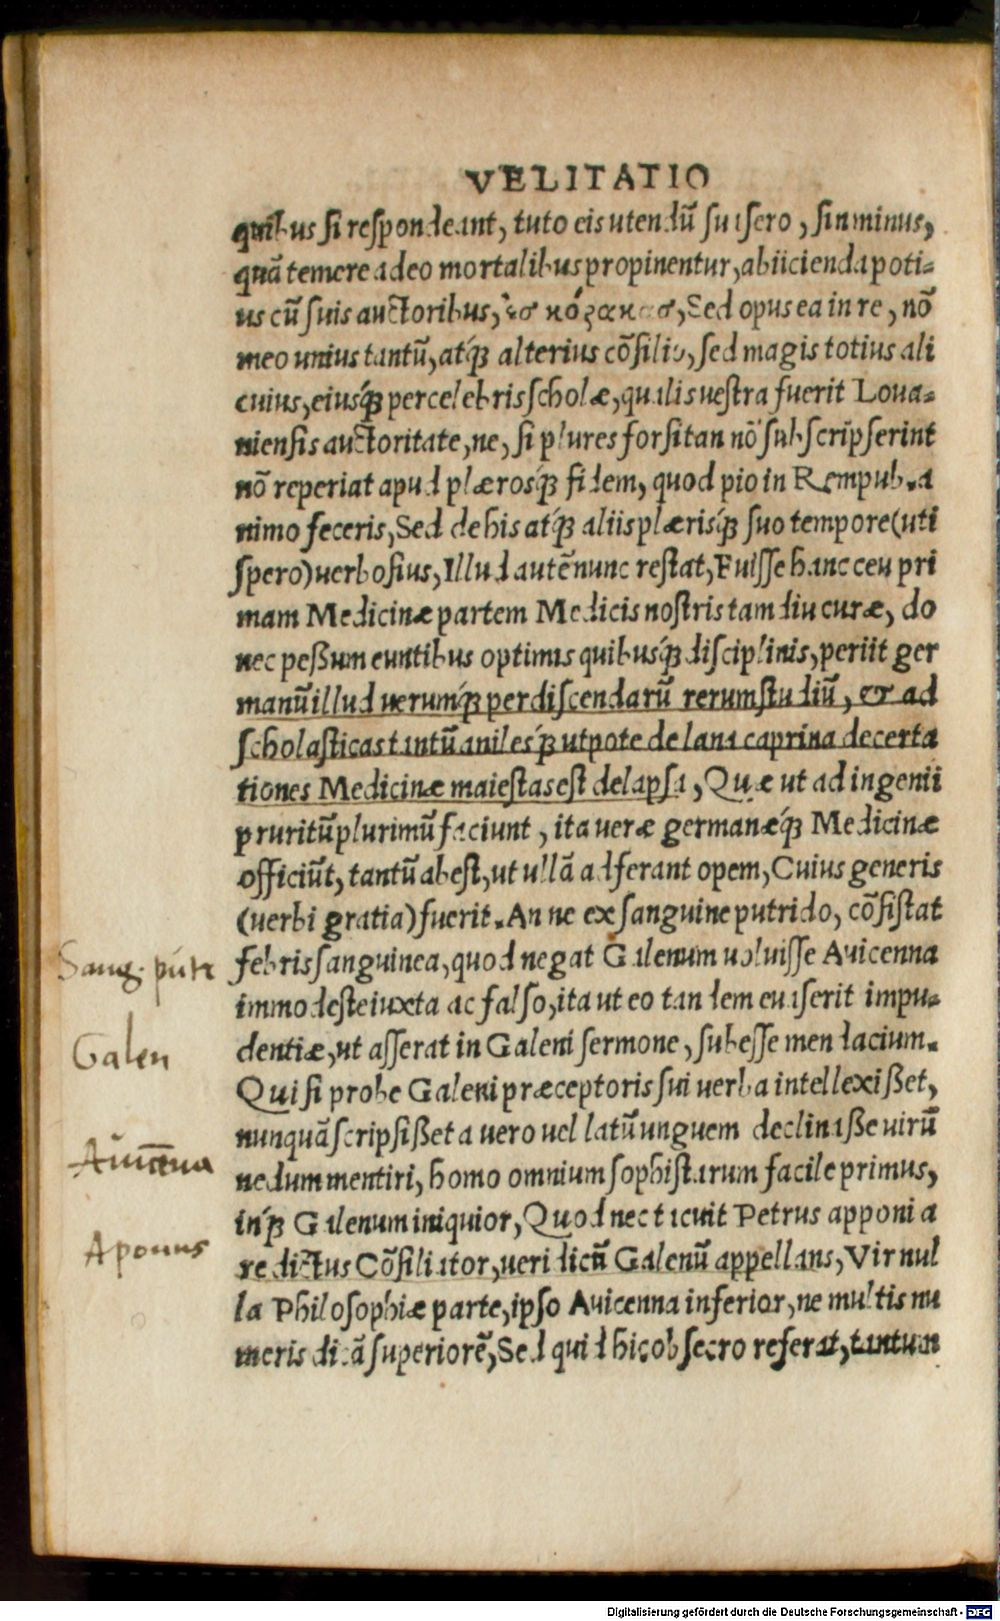 VELITATIO
quibus si respondeant, tuto eis utendū suasero, sin minus,
quā temere adeo mortalibus propinentur, abiicienda poti-
us cū suis auctoribus, ἐσ κόρακασ, Sed opus ea in re, nō
meo unius tantū, atq́; alterius cōsilio, sed magis totius ali
cuius, eiusq́; percelebris scholæ, qualis uestra fuerit Loua-
niensis auctoritate, ne, si plures forsitan nō subscripserint
nō reperiat apud plærosq́; fidem, quod pio in Rempub. a
nimo feceris, Sed de his atq́; aliis plærisq́; suo tempore (uti
spero) uerbosius, Illud autē nunc restat, Fuisse hanc ceu pri
mam Medicinæ partem Medicis nostris tam diu curæ, do
nec peßum euntibus optimis quibusq́; disciplinis, periit ger
manū illud uerumq́; perdiscendarū rerum studiū, & ad
scholasticas tantū anilesq́; utpote de lana caprina decerta
tiones Medicinæ maiestas est delapsa, Quæ ut ad ingenii
pruritū plurimū faciunt, ita veræ germanæq́; Medicinæ
officiūt, tantū abest, ut ullā adferant opem, Cuius generis
(uerbi gratia) fuerit. An ne ex sanguine putrido, cōsistat
febris sanguinea, quod negat Galenum uoluisse Auicenna
immodeste iuxta ac falso, ita ut eo tandem euaserit impu-
dentiæ, ut asserat in Galeni sermone, subesse mendacium.
Qui si probe Galeni præceptoris sui uerba intellexißet,
nunquā scripsißet a uero uel latū unguem declinaße uirū
nedum mentiri, homo omnium sophistarum facile primus,
inq́; Galenum iniquior, Quod nec tacuit Petrus apponi a
re dictus Cōsiliator, ueridicū Galenū appellans, Vir nul
la Philosophiæ parte, ipso Auicenna inferior, ne multis nu
meris dicā superiorē, Sed quid hic obsecro referat, tantum
Sang. putr
Galen
Auicenna
Aponus
Digitalisierung gefördert durch die Deutsche Forschungsgemeinschaft - DFG